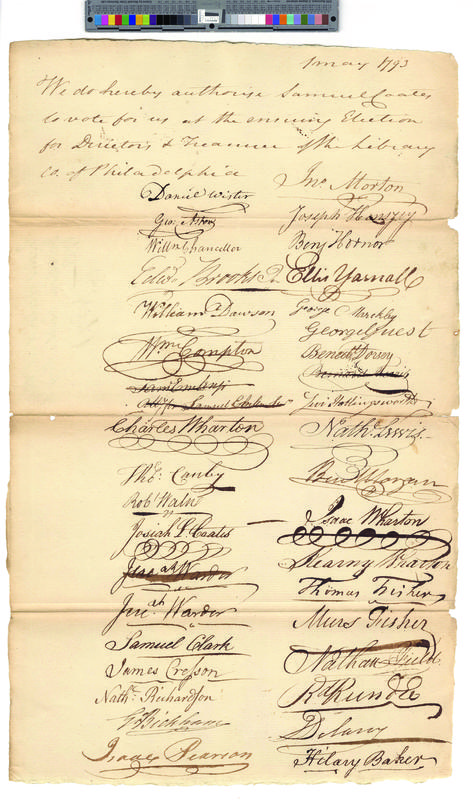 1 may 1793
We do hereby authorise Samuel Coates
to vote for us at the ensuing Election
for Directors & Treasurer of the Library
Co. of Philadelphia
Daniel Wister
Geo: Aston
Willm Chancellor
Edwd Brooks Jr
William Dawson
Wm Compton
Saml Emlen
Charles Wharton
Thos. Canby
Robt Waln
Josiah L. Coates
Jereah Warder
Jereah Warder
Samuel Clark
James Cresson
Nathl. Richardson
Bickham
Isaac Pearson
Jno Morton
Joseph
Benj Hornor
Ellis Yarnall
George
George Guest
Benedt Dorsey
Levi Hollingsworth
Nathl. Lewis
Ben Morgan
Isaac Wharton
Kearny Wharton
Thomas Fisher
Miers Fisher
Nathan Field
Rd Rundle
Delany
Hilary Baker